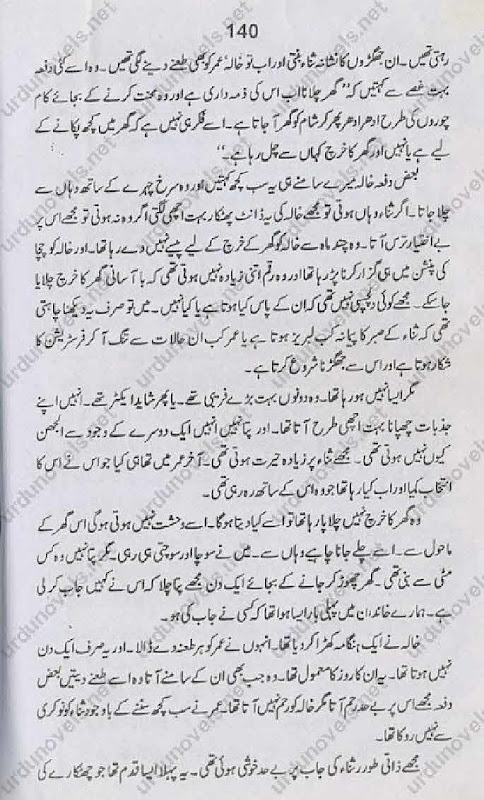 140
رہتی تھیں۔ ان جھگڑوں کا نشانہ ثناء بنتی اور اب تو خالہ عمر کو بھی طعنے دینے لگی تھیں۔ وہ اسے کئی دفعہ
بہت غصے سے کہتیں کہ "گھر چلانا اب اس کی ذمہ داری ہے اور وہ محنت کرنے کے بجائے کام
چوروں کی طرح ادھر ادھر پھر کر شام کو گھر آ جاتا ہے۔ اسے فکر ہی نہیں ہے کہ گھر میں کچھ پکانے کے
لیے ہے یا نہیں اور گھر کا خرچ کہاں سے چل رہا ہے۔"
بعض دفعہ خالہ میرے سامنے ہی یہ سب کچھ کہتیں اور وہ سرخ چہرے کے ساتھ وہاں سے
چلا جاتا۔ اگر ثناء وہاں ہوتی تو مجھے خالہ کی یہ ڈانٹ پھٹکار بہت اچھی لگتی اگر وہ نہ ہوتی تو مجھے اس پر
بے اختیار ترس آتا۔ وہ چند ماہ سے خالہ کو گھر کے خرچ کے لیے پیسے نہیں دے رہا تھا۔ اور خالہ کو چچا
کی پنشن میں ہی گزارہ کرنا پڑ رہا تھا اور وہ رقم اتنی زیادہ نہیں ہوتی تھی کہ با آسانی گھر کا خرچ چلایا
جا سکے۔ مجھے کوئی دلچسپی نہیں تھی کہ ان کے پاس کیا ہوتا ہے یا کیا نہیں۔ میں تو صرف یہ دیکھنا چاہتی
تھی کہ ثناء کے صبر کا پیمانہ کب لبریز ہوتا ہے یا عمر کب ان حالات سے تنگ آ کر فرسٹریشن کا
شکار ہوتا ہے اور اس سے جھگڑنا شروع کرتا ہے۔
مگر ایسا نہیں ہو رہا تھا۔ وہ دونوں بہت بڑے فریبی تھے۔ یا پھر شاید ایکٹر تھے۔ انہیں اپنے
جذبات چھپانا بہت اچھی طرح آتا تھا۔ اور پتا نہیں انہیں ایک دوسرے کے وجود سے الجھن
کیوں نہیں ہوتی تھی۔ مجھے ثناء پر زیادہ حیرت ہوتی تھی۔ آخر عمر میں تھا ہی کیا جو اس نے اس کا
انتخاب کیا اور اب کیا رہا تھا جو وہ اس کے ساتھ رہ رہی تھی۔
وہ گھر کا خرچ نہیں چلا پا رہا تھا تو اسے کیا دیتا ہوگا۔ اسے وحشت نہیں ہوتی ہوگی اس گھر کے
ماحول سے۔ اسے چلے جانا چاہیے وہاں سے۔ میں نے سوچا اور سوچتی ہی رہی۔ مگر پتا نہیں وہ کس
مٹی سے بنی تھی۔ گھر چھوڑ کر جانے کے بجائے ایک دن مجھے پتا چلا کہ اس نے کہیں جاب کر لی
ہے۔ ہمارے خاندان میں پہلی بار ایسا ہوا تھا کہ کسی نے جاب کی ہو۔
خالہ نے ایک ہنگامہ کھڑا کر دیا تھا۔ انہوں نے عمر کو ہر طعنہ دے ڈالا۔ اور یہ صرف ایک دن
نہیں ہوتا تھا۔ یہ ان کا روز کا معمول تھا۔ وہ جب بھی ان کے سامنے آتا وہ اسے طعنے دیتیں بعض
دفعہ مجھے اس پر بے حد رحم آتا مگر خالہ کو رحم نہیں آتا تھا۔ عمر نے سب کچھ سننے کے باوجود ثناء کو نوکری
سے نہیں روکا تھا۔
مجھے ذاتی طور پر ثناء کی جاب پر بے حد خوشی ہوئی تھی۔ یہ پہلا ایسا قدم تھا جو چھٹکارے کی
urdunovels.net